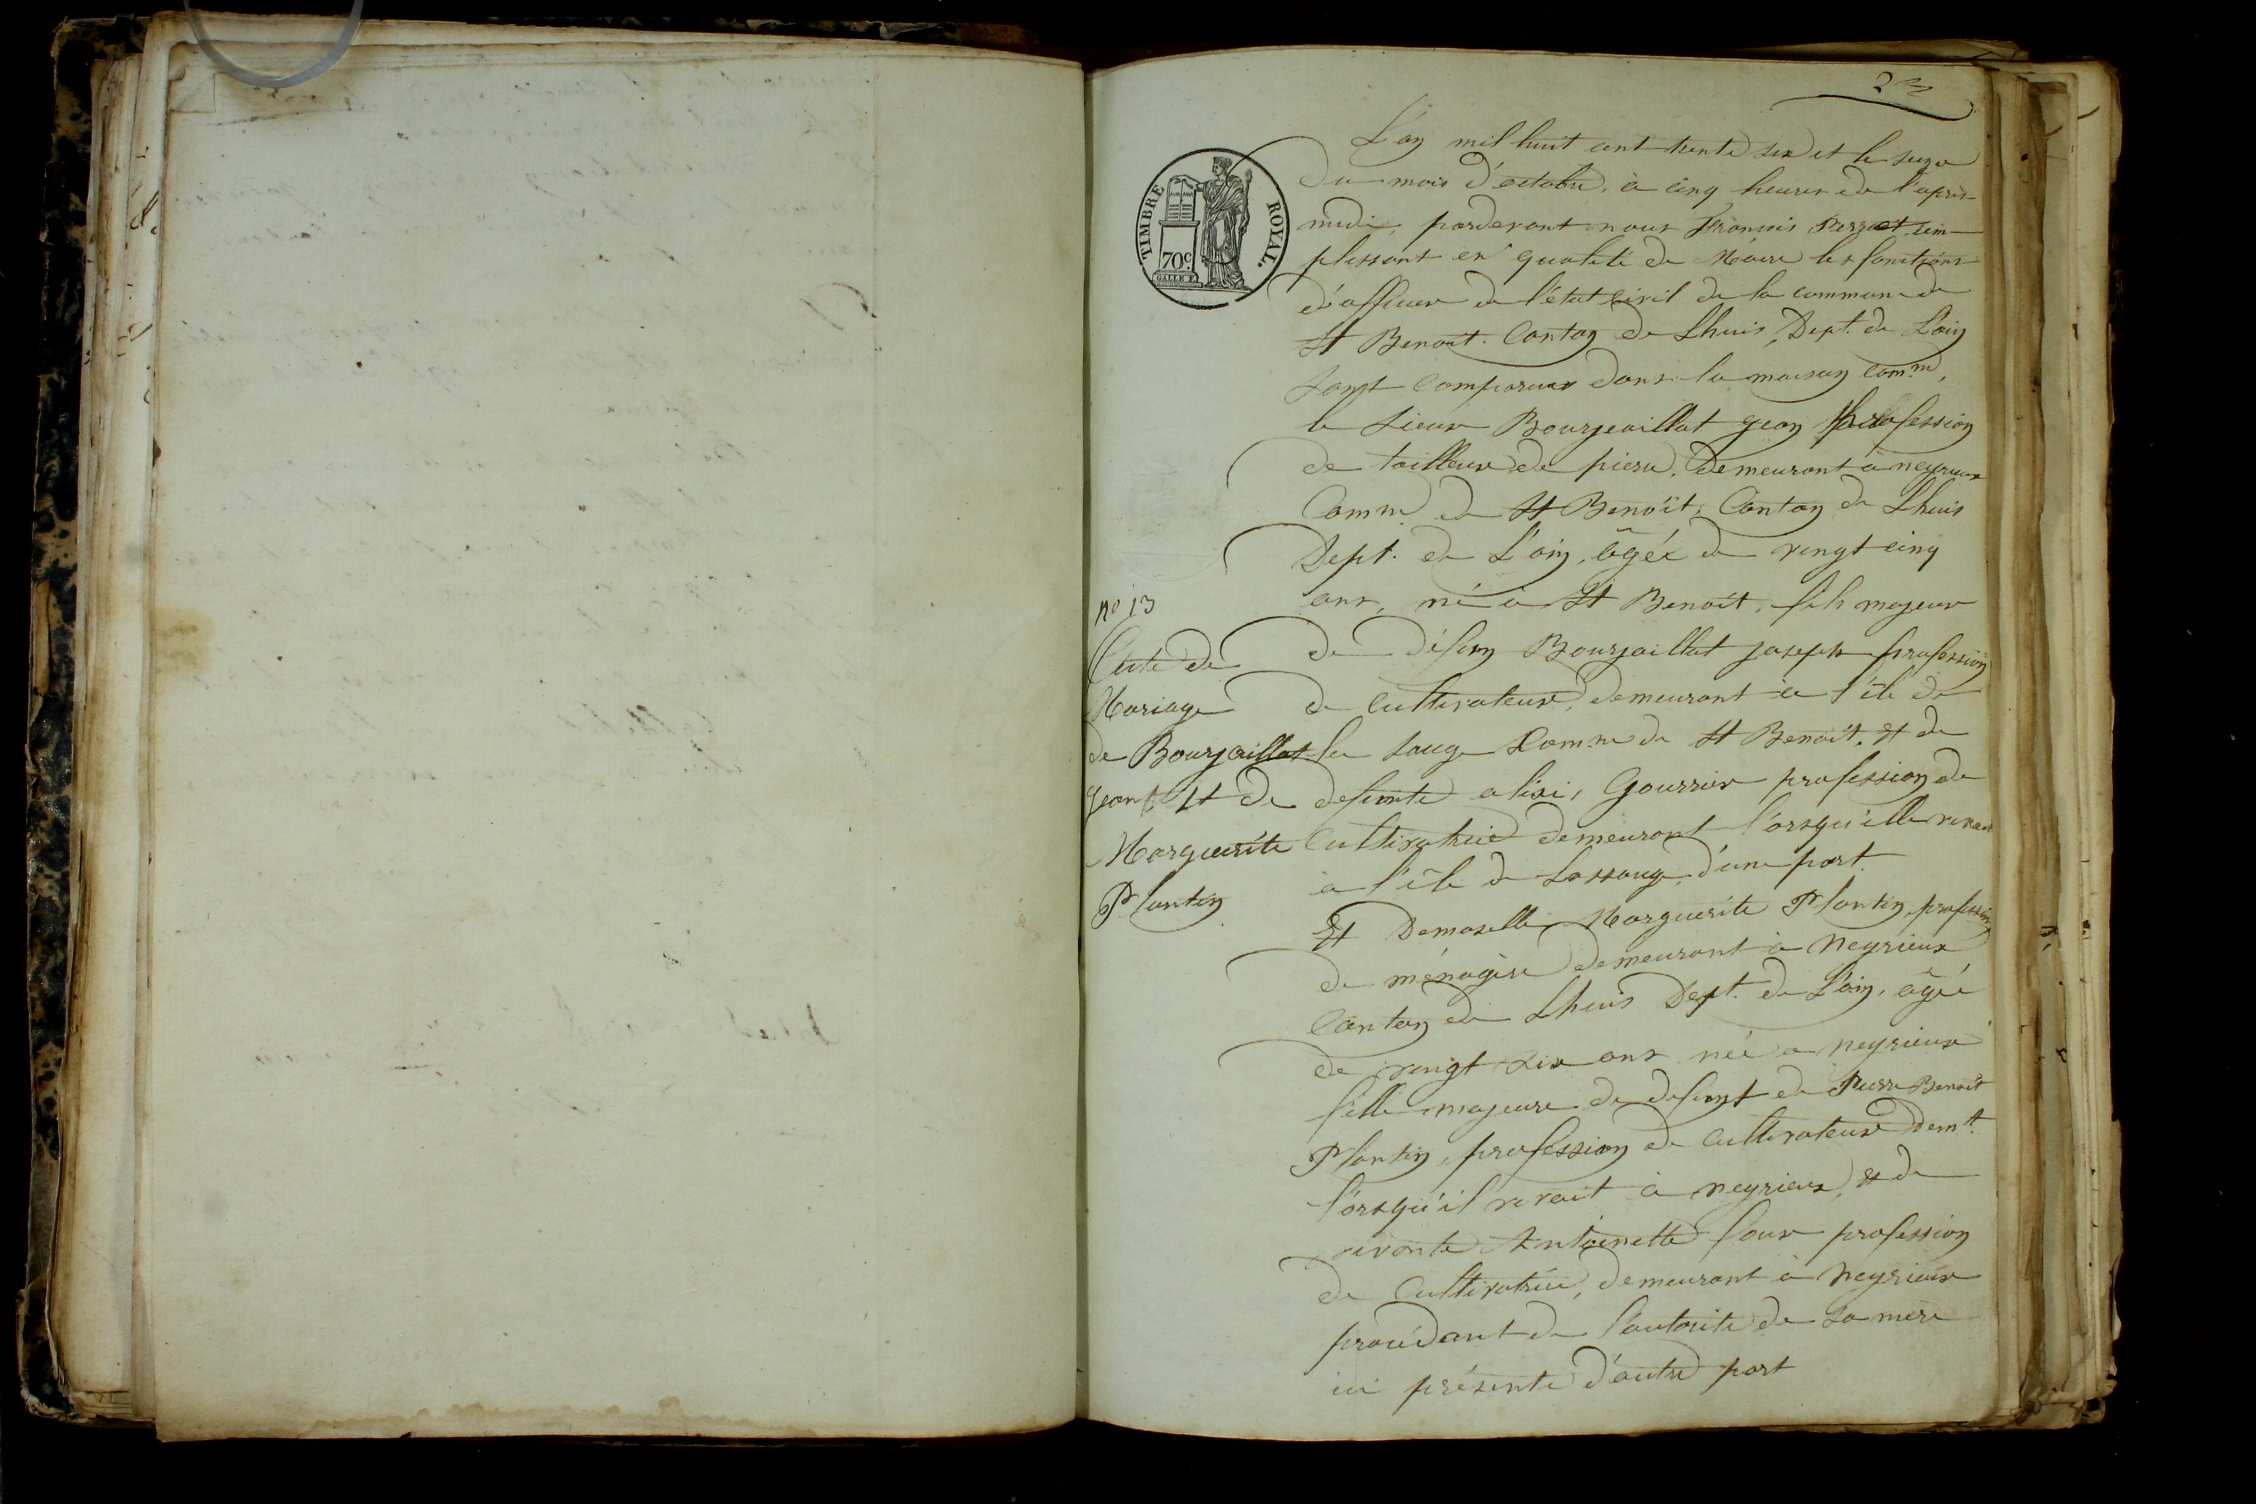 23
TIMBRE ROYAL.
70c.
L'an mil huit cent trente six et le seize
du mois d'octobre, à cinq heures de l'après
midi, pardevant nous François Perret, rem-
plissant en qualité de Maire les fonctions
d'officier de l'état civil de la commune de
St Benoit. Canton de Lhuis, Dept. de L'ain
sont comparus dans la maison comm.
le sieur Bourjeaillat jean profession
de tailleur de piere, demeurant à neyrieux
Comm. de St Benoït, Canton de Lhuis
Dept. de L'ain, âgéé de vingt cinq
ans, né à St Benoit, fils majeur
de Défun Bourjaillat joseph profession
de cultivateur, demeurant à l'île de
la sauge Comm. de St Benoit. et de
defunte Gourrier profession de
Cultivatrice demeurant l'orsqu'elle vivait
à l'île de Lassauge, d'une part.
Et Demoselle Marguerite Plantin, profession
de ménagère demeurant à Neyrieux
Canton de Lhuis Dept. de L'ain, âgéé
de vingt six ans née a neyrieux
fille majeure de defunt de Pierre Benoit
Plantin, profession de cultivateur demt.
l'orsqu'il vivait à neyrieux, et de
vivante Antoinette four profession
de Cultivatrice, demeurant à Neyrieux
procédant de l'autorité de sa mere
ici présente d'autre part
no 13
Acte de
Mariage
de Bourjaillat
jean Et de
Marguerite
Plantin